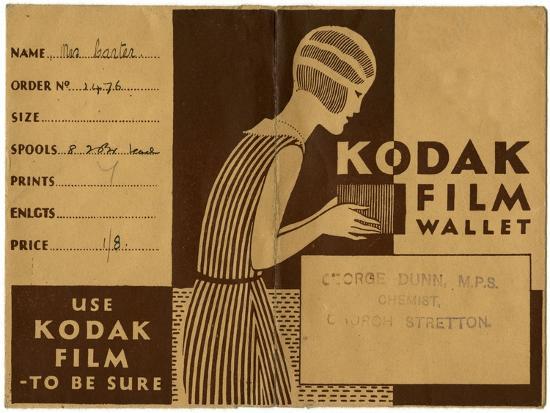 NAME Mrs Carter
ORDER Nº 2476
SIZE
SPOOLS 8 2 each
PRINTS
ENLGTS
PRICE 1/8.
USE
KODAK
FILM
-TO BE SURE
KODAK
FILM
WALLET
GEORGE DUNN, M.P.S.
CHEMIST,
CHURCH STRETTON.